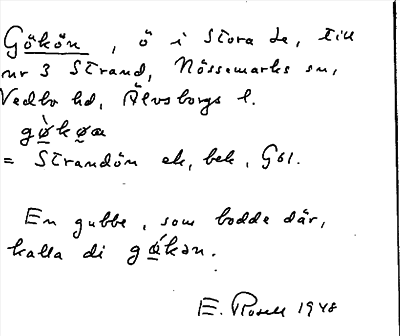 Gökön, ö i Stora Le, till
nr 3 Strand, Nössemarks sn,
Vedbo hd, Älvsborgs l.
gø̀køa
= Strandön ek, bek, G61.
En gubbe, som bodde där,
kalla di gǿkən.
E. Rosell 1948